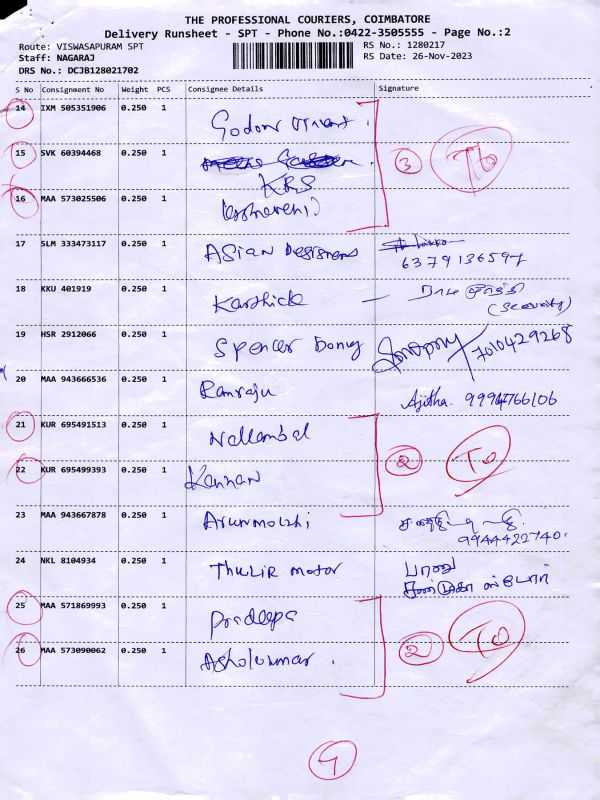 THE PROFESSIONAL COURIERS, COIMBATORE
Delivery Runsheet - SPT - Phone No.:0422-3505555 - Page No.:2
Route: VISWASAPURAM SPT RS No.: 1280217
Staff: NAGARAJ RS Date: 26-Nov-2023
DRS No.: DCJB128021702
S No Consignment No Weight PCS Consignee Details Signature
14 IXM 505351906 0.250 1
15 SVK 60394468 0.250 1 3 TO
KRS
16 MAA 573025506 0.250 1
17 SLM 333473117 0.250 1 Asian Designers
6379136597
18 KKU 401919 0.250 1 Karthick
(Security)
19 HSR 2912066 0.250 1 Spencer 7010429268
20 MAA 943666536 0.250 1 Ramraju Ajitha. 9994766106
21 KUR 695491513 0.250 1 Nallambal
2 TO
22 KUR 695499393 0.250 1 Kannan
23 MAA 943667878 0.250 1 Arunmozhi
9944422740.
24 NKL 8104934 0.250 1 Thulir motor
25 MAA 571869993 0.250 1 Pradeepa
2 TO
26 MAA 573090062 0.250 1 Asholkumar.